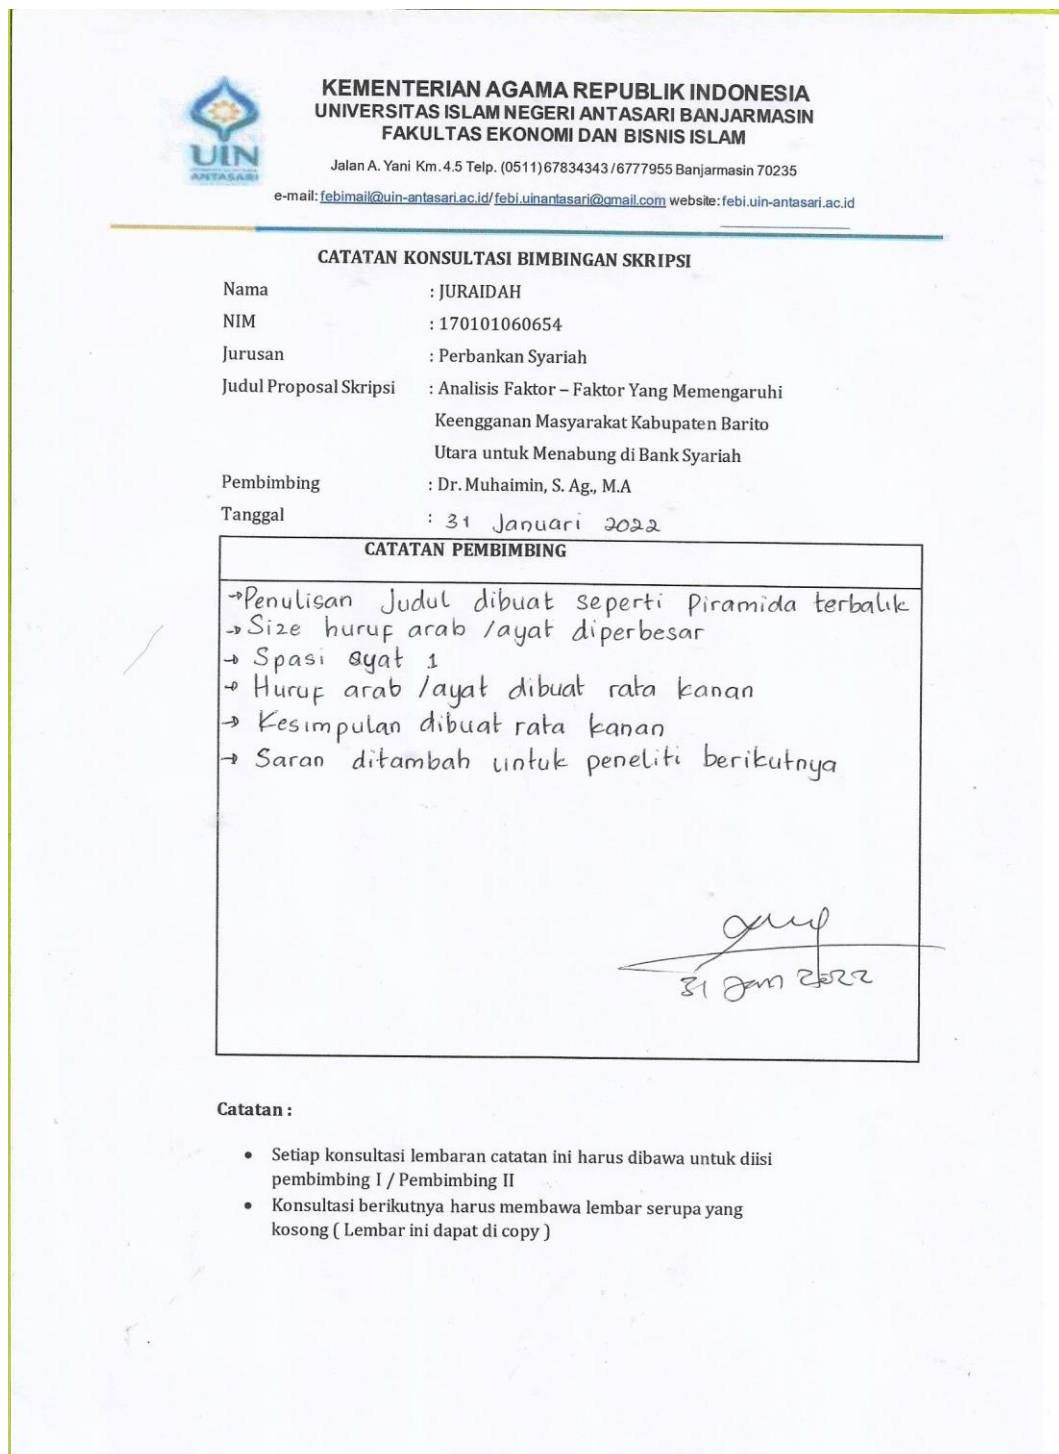 KEMENTERIAN AGAMA REPUBLIK INDONESIA
UNIVERSITAS ISLAM NEGERI ANTASARI BANJARMASIN
FAKULTAS EKONOMI DAN BISNIS ISLAM
UIN
ANTASARI
Jalan A. Yani Km. 4.5 Telp. (0511) 67834343 / 6777955 Banjarmasin 70235
e-mail: febimail@uin-antasari.ac.id/ febi.uinantasari@gmail.com website: febi.uin-antasari.ac.id
CATATAN KONSULTASI BIMBINGAN SKRIPSI
Nama : JURAIDAH
NIM : 170101060654
Jurusan : Perbankan Syariah
Judul Proposal Skripsi : Analisis Faktor – Faktor Yang Memengaruhi
Keengganan Masyarakat Kabupaten Barito
Utara untuk Menabung di Bank Syariah
Pembimbing : Dr. Muhaimin, S. Ag., M.A
Tanggal : 31 Januari 2022
CATATAN PEMBIMBING
→ Penulisan Judul dibuat seperti Piramida terbalik
→ Size huruf arab /ayat diperbesar
→ Spasi ayat 1
→ Huruf arab /ayat dibuat rata kanan
→ Kesimpulan dibuat rata kanan
→ Saran ditambah untuk peneliti berikutnya
31 Jan 2022
Catatan :
• Setiap konsultasi lembaran catatan ini harus dibawa untuk diisi
pembimbing I / Pembimbing II
• Konsultasi berikutnya harus membawa lembar serupa yang
kosong ( Lembar ini dapat di copy )